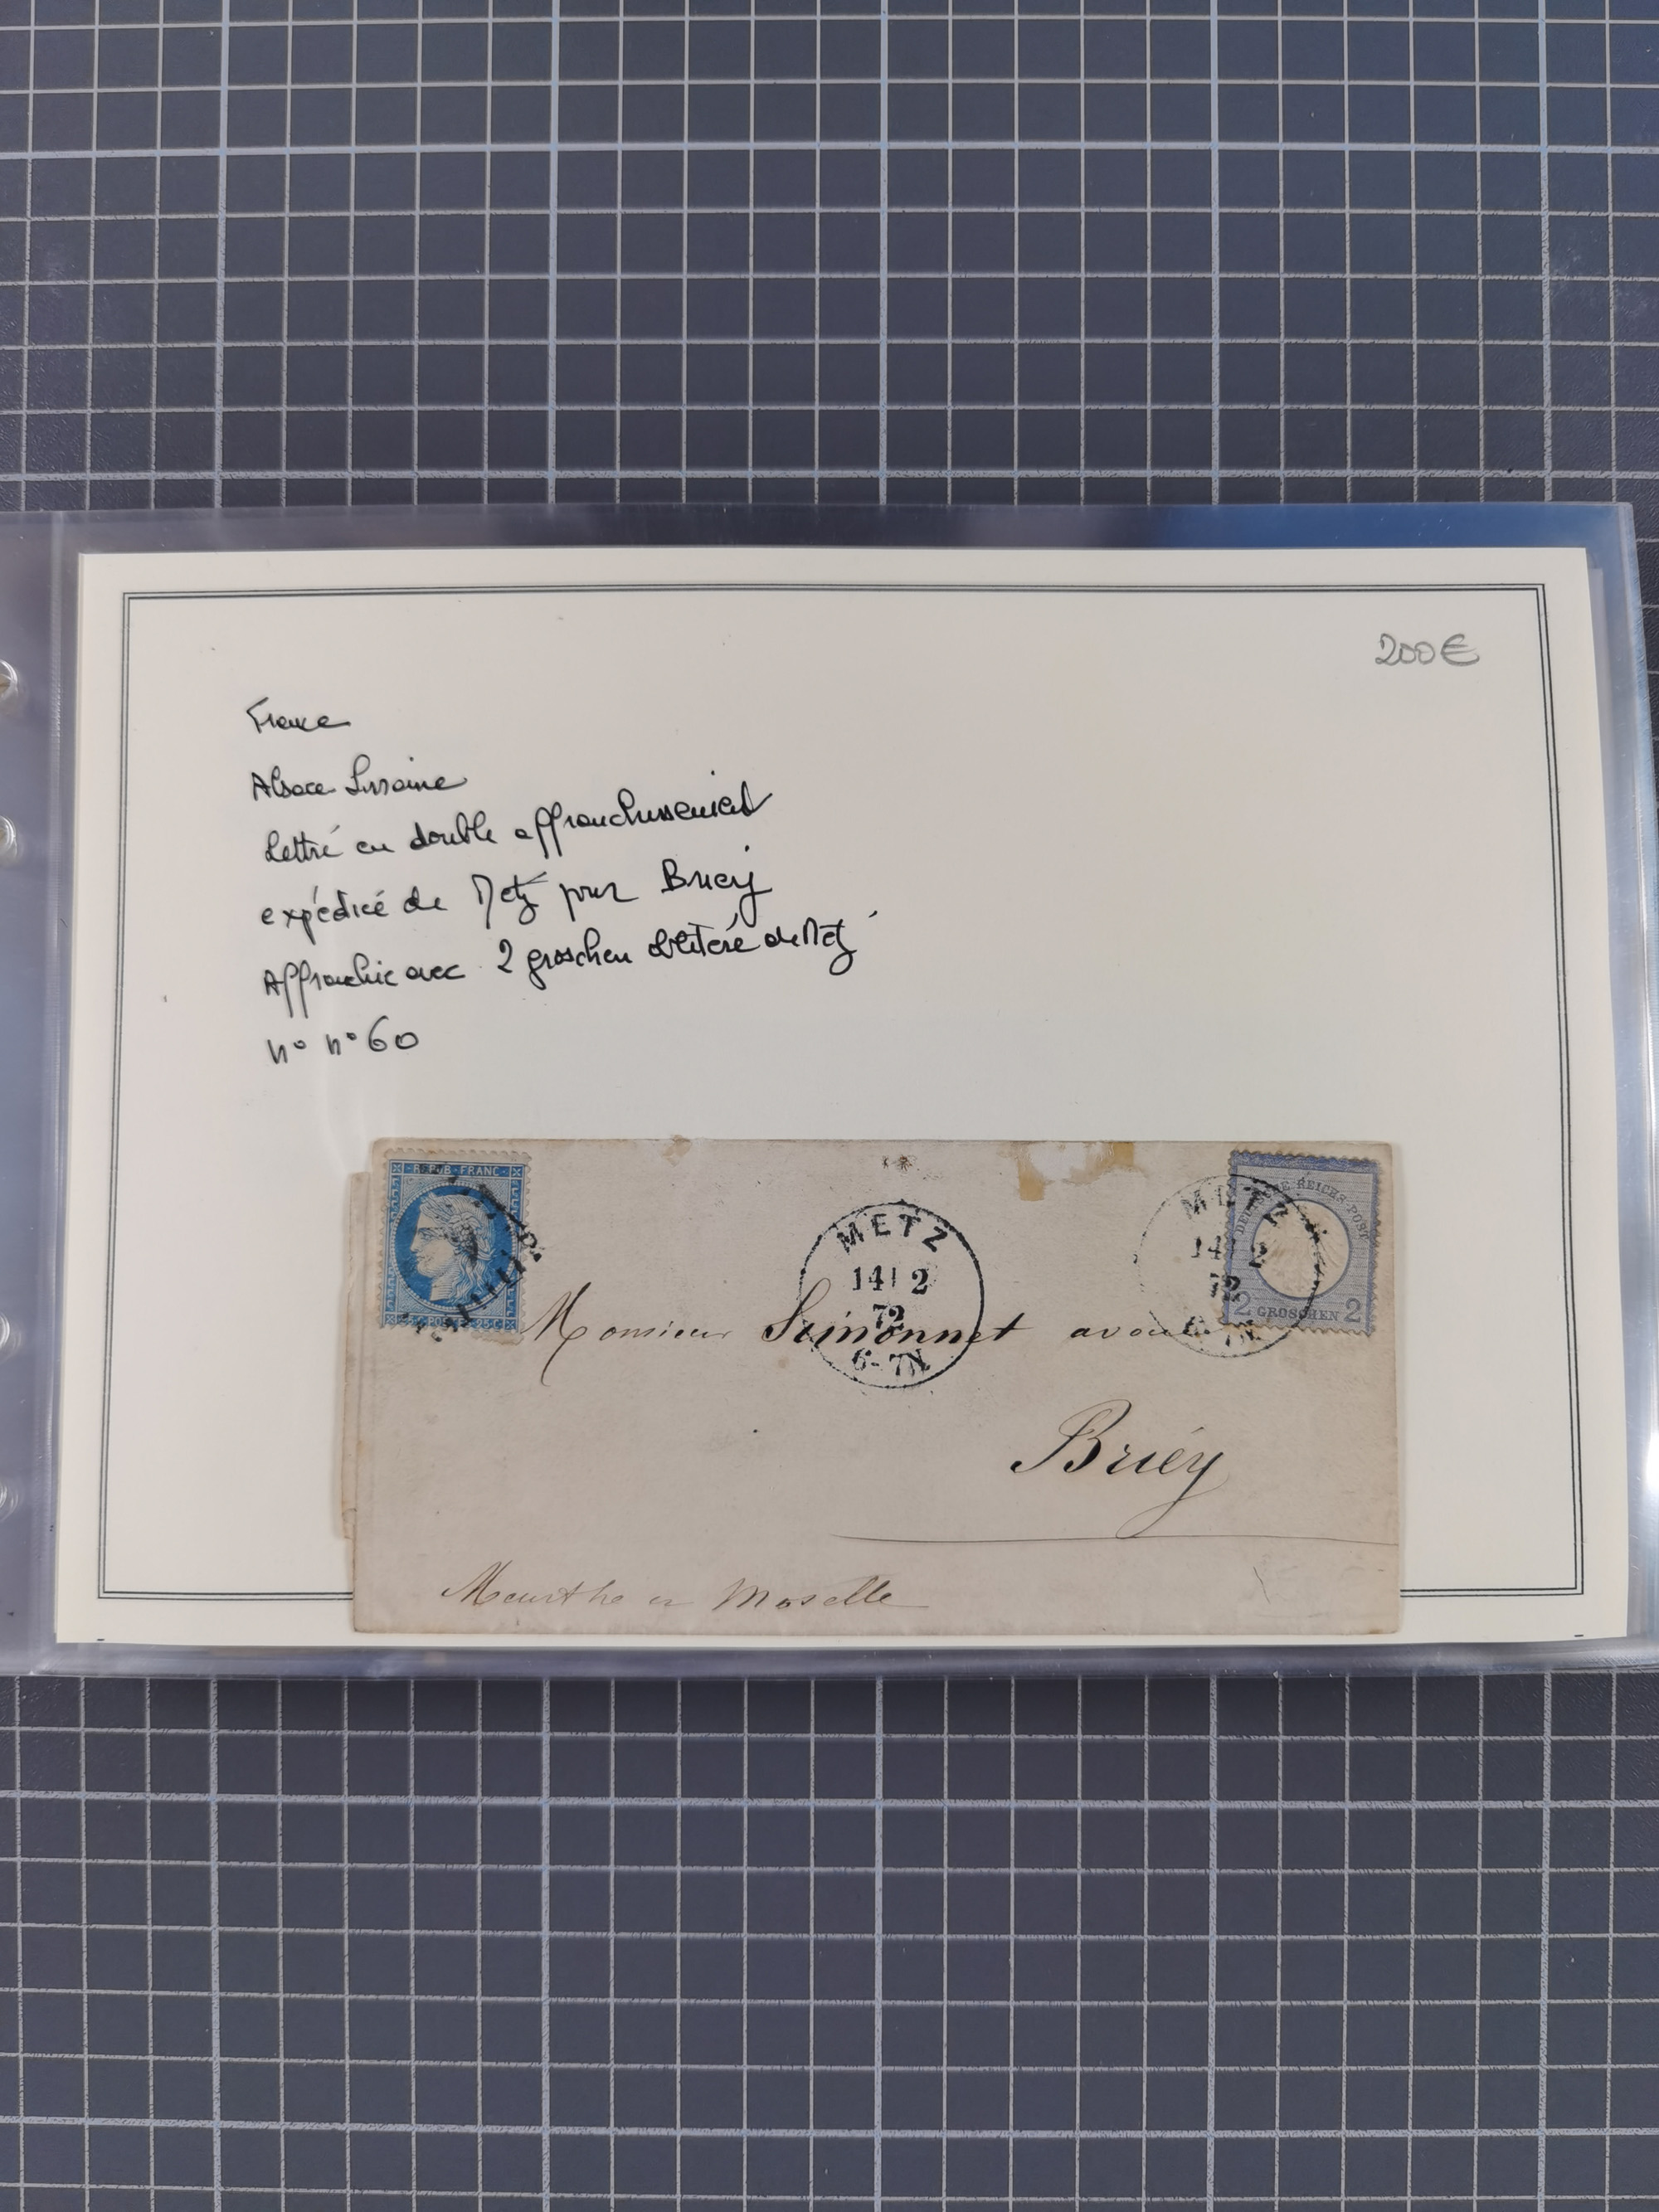 200€
France
Alsace Lorraine
lettre en double affranchissement
expédiée de Metz pour Briey
Affranchie avec 2 groschen oblitéré de Metz
n° n°60
REPUB·FRANC
25 C POSTES 25 C
METZ
14 2
72
6-7N
METZ
14 2
72
REICHS-POST
2 GROSCHEN 2
Monsieur Simonnet avoué
Briey
Meurthe et Moselle